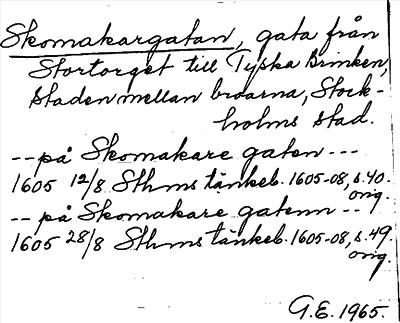 Skomakargatan, gata från
Stortorget till Tyska Brinken,
Staden mellan broarna, Stock-
holms stad.
-- på Skomakare gaten ---
1605 12/8 Sthms tänkeb. 1605-08, s. 40.
orig.
-- på Skomakare gatenn --
1605 28/8 Sthms tänkeb. 1605-08, s. 49.
orig.
G.E. 1965.